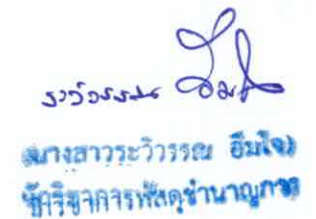 ระวิวรรณ อิ่มใจ
(นางสาวระวิวรรณ อิ่มใจ)
นักวิชาการพัสดุชำนาญการ